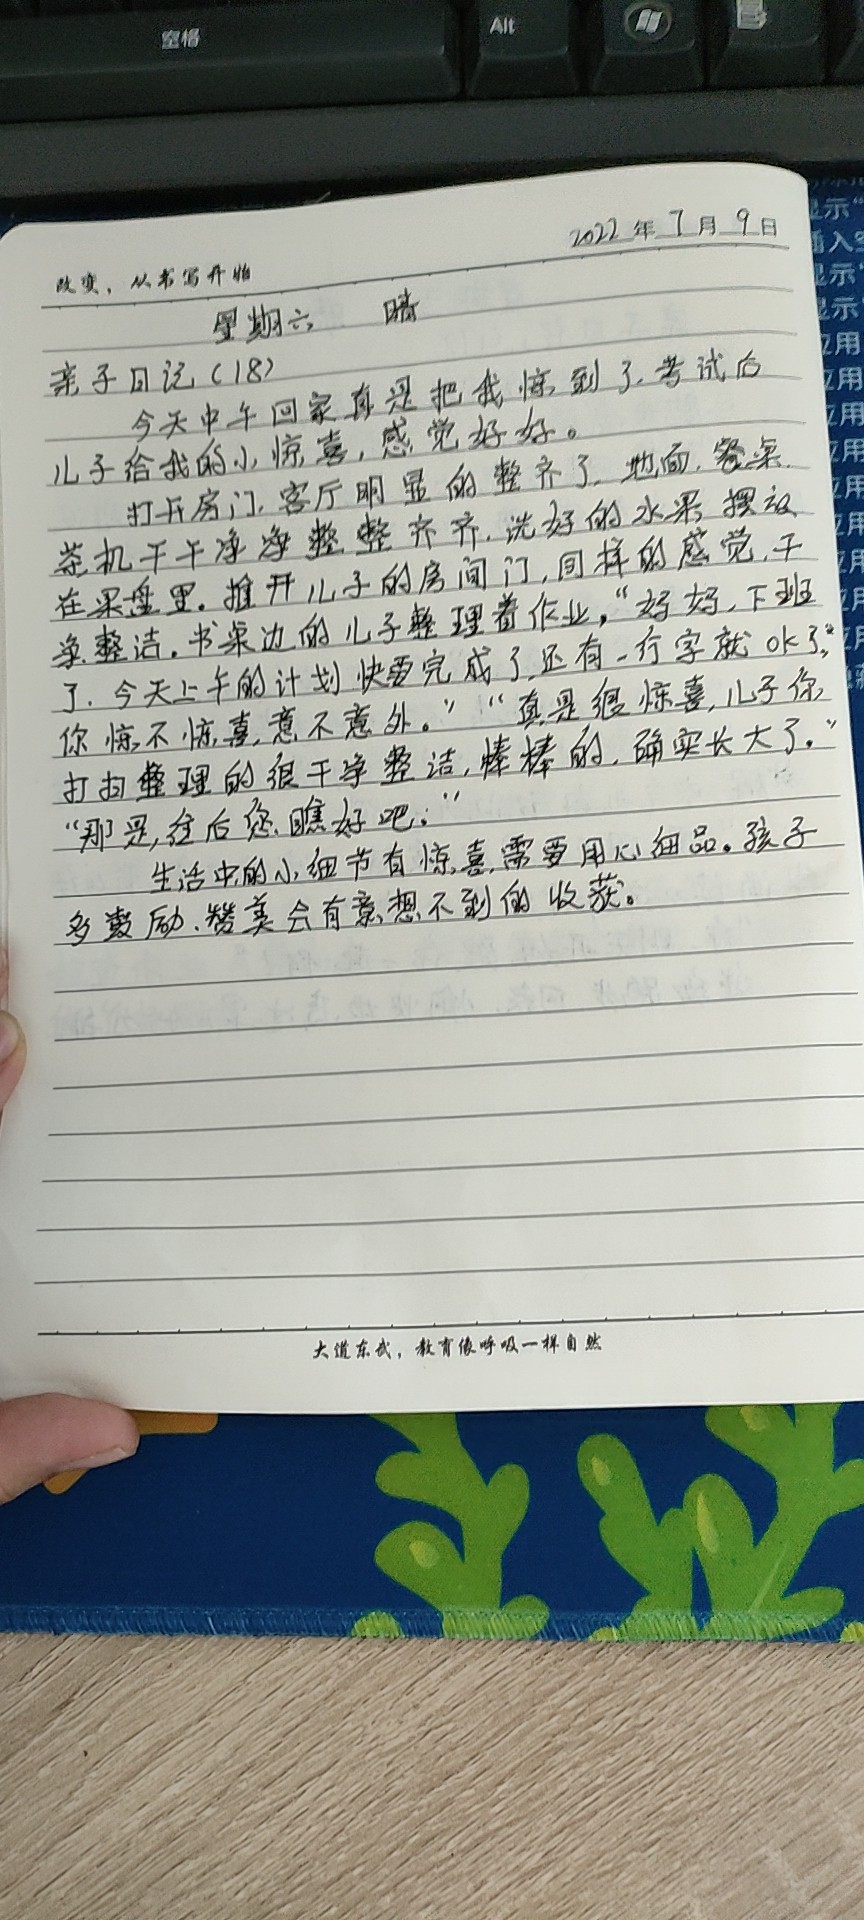 空格
Alt
2022年7月9日
改变，从书写开始
星期六 晴
亲子日记（18）
今天中午回家真是把我惊到了，考试后
儿子给我的小惊喜，感觉好好。
打开房门，客厅明显的整齐了，地面，餐桌，
茶机干干净净整整齐齐，洗好的水果摆放
在果盘里。推开儿子的房间门，同样的感觉，干
净整洁。书桌边的儿子整理着作业，“妈妈，下班
了，今天上午的计划快要完成了，还有一行字就OK了，
你惊不惊喜，意不意外。”“真是很惊喜，儿子你
打扫整理的很干净整洁，棒棒的，确实长大了。”
“那是，往后您瞧好吧。”
生活中的小细节有惊喜，需要用心细品。孩子
多鼓励、赞美会有意想不到的收获。
大道东武，教育像呼吸一样自然
显示“
插入空
显示“
显示“
应用
应用
应用
应用
应用
应用
应用